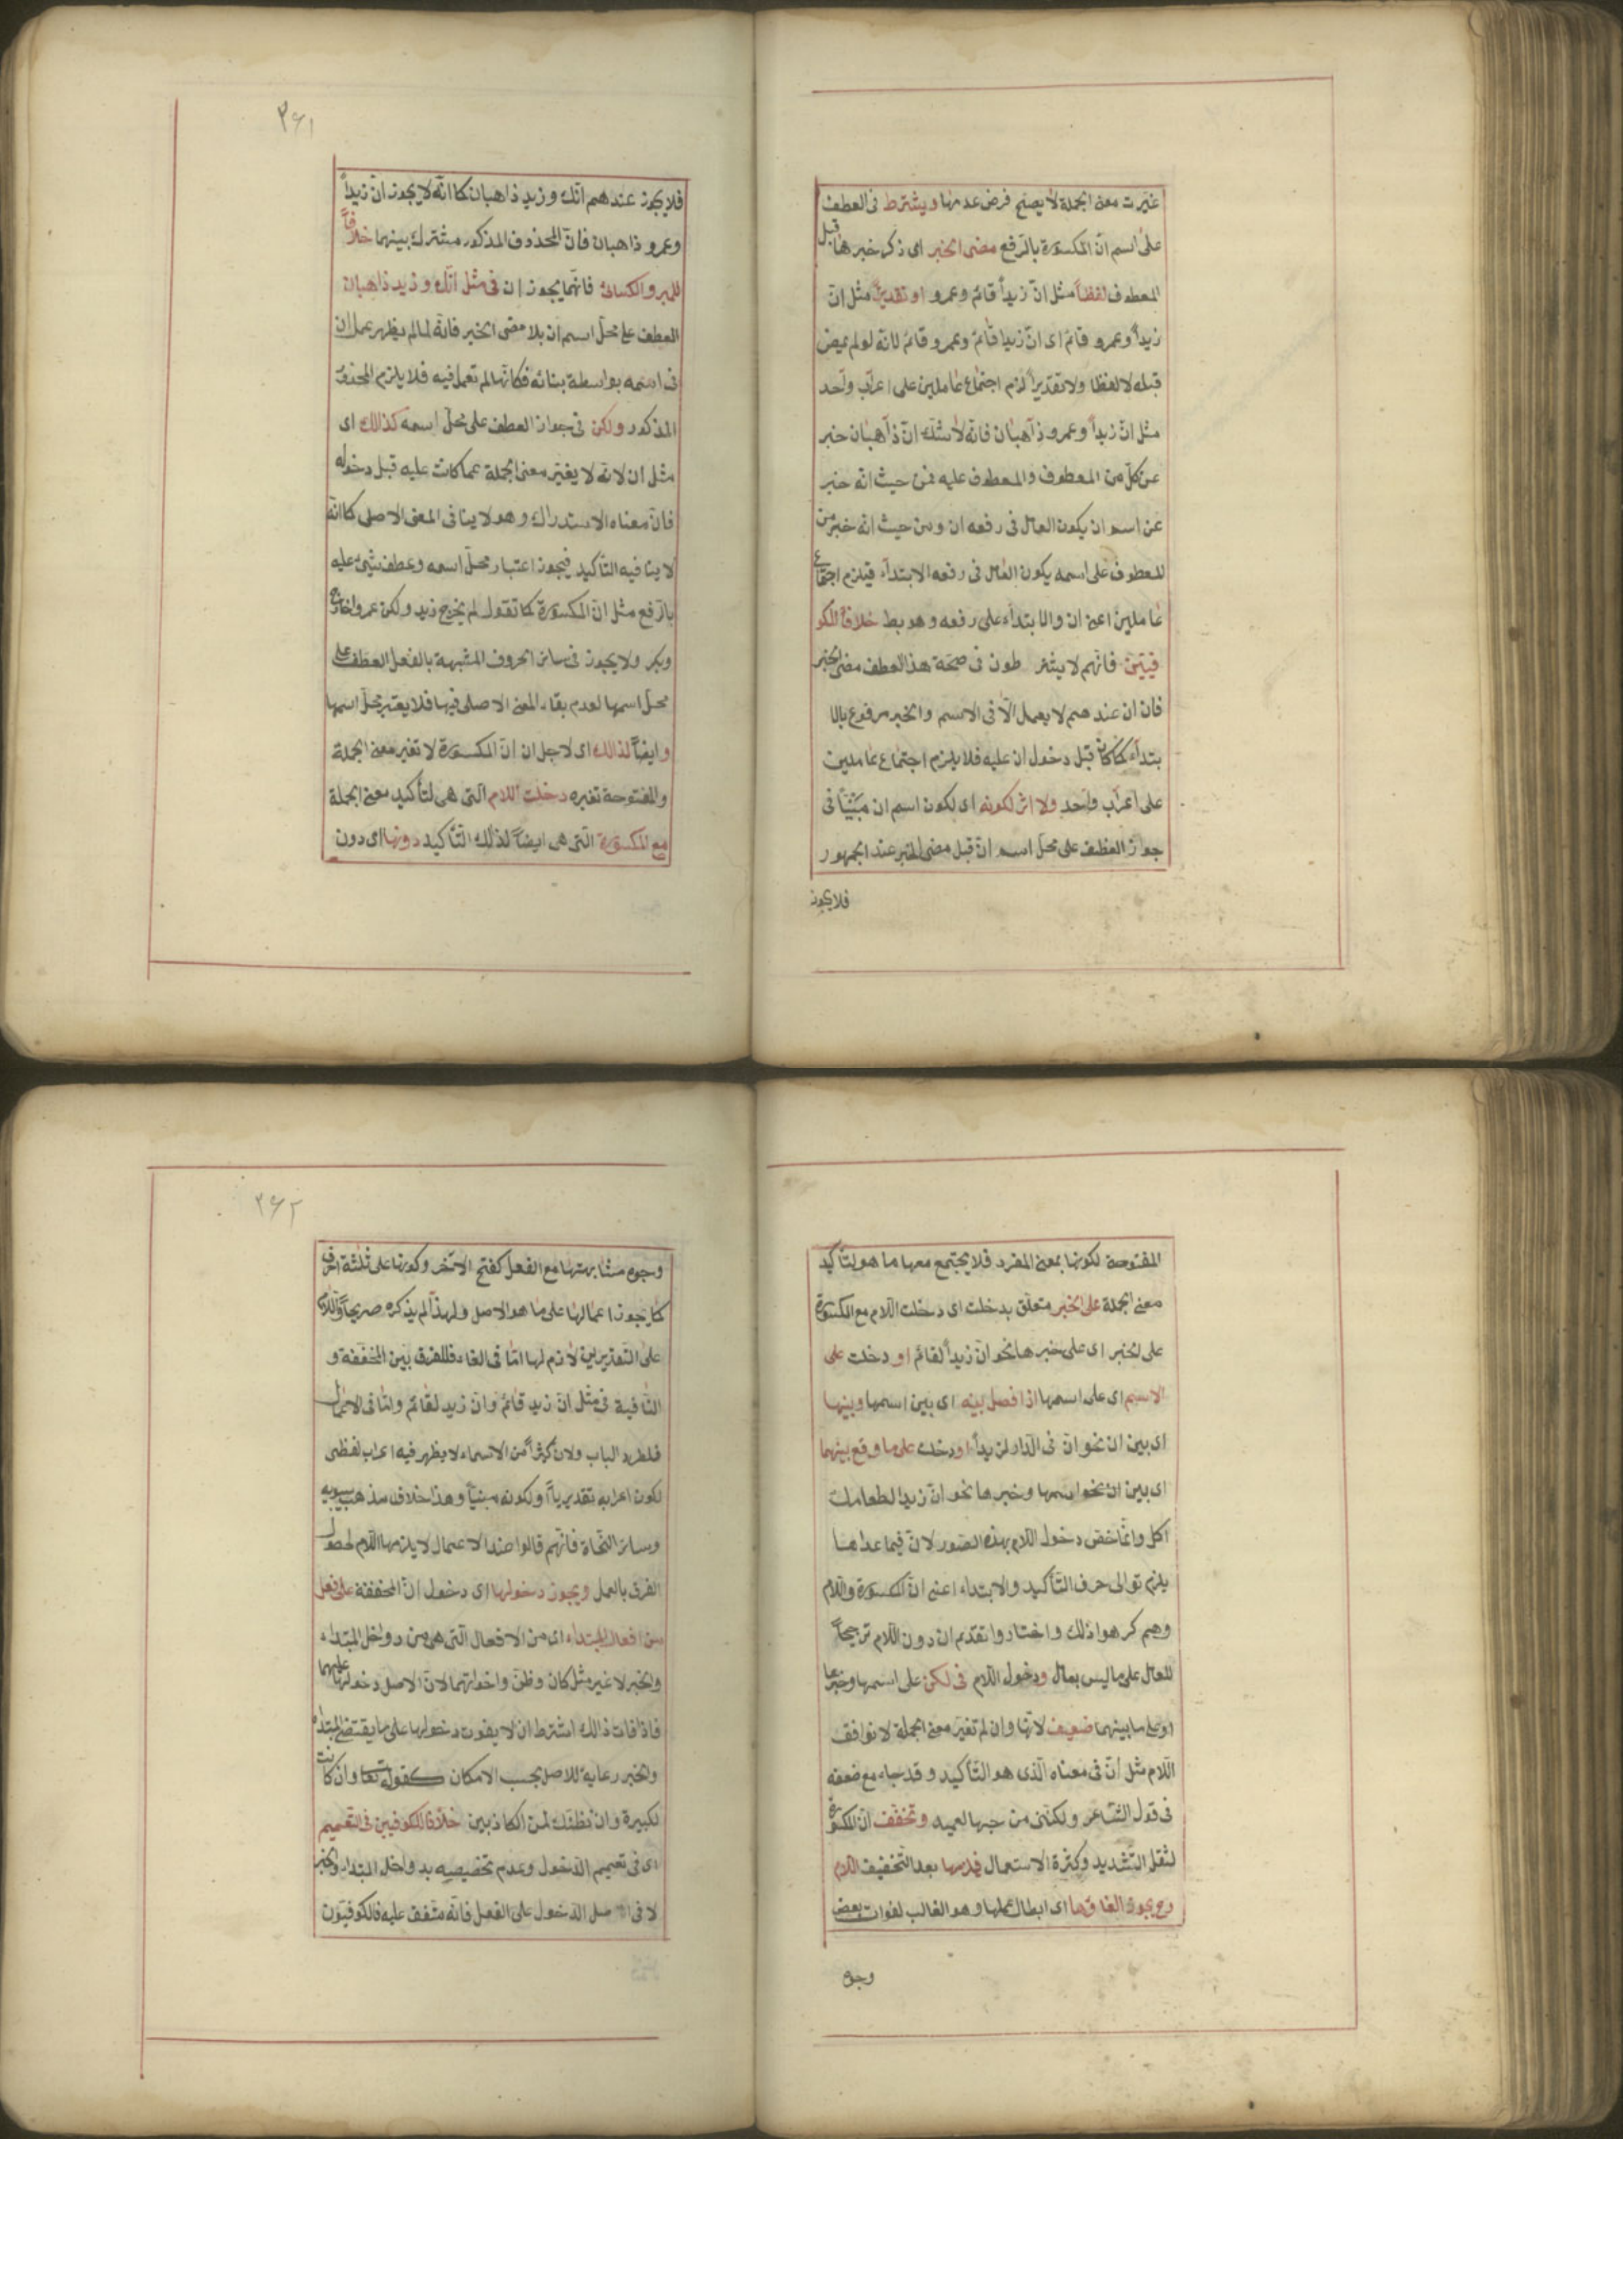 غيرت معنى الجملة لا يصح فرض عدمها ويشترط فى العطف
على اسم انّ المكسورة بالرفع مضى الخبر اى ذكر خبرها قبل
المعطوف لفظاً مثل انّ زيداً قائم وعمرو او تقديراً مثل انّ
زيداً وعمرو قائم اى انّ زيدا قائم وعمرو قائم لانّه لو لم يمض
قبله لا لفظا ولا تقديراً لزم اجتماع عاملين على اعراب واحد
مثل انّ زيداً وعمرو ذاهبان فانّه لا شك انّ ذاهبان خبر
عن كلّ من المعطوف والمعطوف عليه فمن حيث انّه خبر
عن اسم ان يكون العامل فى رفعه ان ومن حيث انه خبر من
المعطوف على اسمه يكون العامل فى رفعه الابتداء فيلزم اجتماع
عاملين اعنى ان والابتداء على رفعه وهو بط خلافاً للكو
فيين فانّهم لا يشتر طون فى صحّة هذا العطف مضى الخبر
فان ان عندهم لا يعمل الّا فى الاسم والخبر مرفوع بالا
بتداء كما كان قبل دخول ان عليه فلا يلزم اجتماع عاملين
على اعراب واحد ولا اثر لكونه اى لكون اسم ان مبنيّاً فى
جواز العطف على محلّ اسم انّ قبل مضى الخبر عند الجمهور
فلا يجوز
٣٦١
فلا يجوز عندهم انّك وزيد ذاهبان كما انّه لا يجوز انّ زيداً
وعمرو ذاهبان فانّ المحذوف المذكور مشترك بينهما خلافاً
للمبرد والكسائى فانهما يجوزان فى مثل انّك وزيد ذاهبان
العطف على محلّ اسم ان بلا مضى الخبر فانّه لما لم يظهر عمل ان
فى اسمه بواسطة بنائه فكانّها لم تعمل فيه فلا يلزم المحذور
المذكور ولكن فى جواز العطف على محلّ اسمه كذلك اى
مثل ان لانّه لا يغير معنى الجملة عما كانت عليه قبل دخوله
فانّ معناه الاستدراك وهو لا ينافى المعنى الاصلى كما انّه
لا ينافيه التأكيد فيجوز اعتبار محلّ اسمه وعطف شئ عليه
بالرفع مثل انّ المكسورة كما تقول لم يخرج زيد ولكن عمرو خارج
وبكر ولا يجوز فى سائر الحروف المشبهة بالفعل العطف على
محلّ اسمها لعدم بقاء المعنى الاصلى فيها فلا يعتبر محلّ اسمها
وايضاً لذالك اى لاجل ان انّ المكسورة لا تغير معنى الجملة
والمفتوحة تغيره دخلت اللام التى هى لتأكيد معنى الجملة
مع المكسورة التى هى ايضاً لذلك التأكيد دونها اى دون
المفتوحة لكونها بمعنى المفرد فلا يجتمع معها ما هو لتأكيد
معنى الجملة على الخبر متعلّق بدخلت اى دخلت اللام مع المكسورة
على الخبر اى على خبرها نحو انّ زيداً لقائم او دخلت على
الاسم اى على اسمها اذا فصل بينه اى بين اسمها وبينها
اى بين ان نحو انّ فى الدار لزيداً او دخلت على ما وقع بينهما
اى بين ان نحو اسمها وخبرها نحو انّ زيدا لطعامك
اكل وانّما خصّ دخول اللام بهذه الصور لانّ فيما عداها
يلزم توالى حرف التأكيد والابتداء اعنى انّ المكسورة واللام
وهم كرهوا ذلك واختاروا تقديم ان دون اللام ترجيحاً
للعامل على ما ليس بعامل ودخول اللام فى لكن على اسمها وخبرها
او على ما بينهما ضعيف لانّها وان لم تغير معنى الجملة لا توافق
اللام مثل انّ فى معناه الذى هو التأكيد وقد جاء مع ضعفه
فى قول الشاعر ولكنّنى من حبها لعميد وتخفف انّ المكسورة
لثقل التشديد وكثرة الاستعمال فيلزمها بعد التخفيف اللام
وح يجوز الغاؤها اى ابطال عملها وهو الغالب لفوات بعض
وجوه
٣٦٢
وجوه مشابهتها مع الفعل كفتح الاخر وكونها على ثلثة احرف
كما يجوز اعمالها على ما هو الاصل ولهذا لم يذكره صريحاً واللام
على التقديرين لازم لها امّا فى الالغاء فللفرق بين المخففة و
النافية فى مثل انّ زيد قائم وانّ زيد لقائم وامّا فى الاعمال
فلطرد الباب ولان كثيراً من الاسماء لا يظهر فيه اعراب لفظى
لكون اعرابه تقديرياً او لكونه مبنياً وهذا خلاف مذهب سيبويه
وسائر النحاة فانّهم قالوا عند الاعمال لا يلزمها اللام لحصول
الفرق بالعمل ويجوز دخولها اى دخول انّ المخففة على فعل
من افعال المبتداء اى من الافعال التى هى من دواخل المبتداء
والخبر لا غير مثل كان وظنّ واخواتهما لانّ الاصل دخولها عليهما
فاذا فات ذالك اشترط ان لا يفوت دخولها على ما يقتضى المبتداء
والخبر رعاية للاصل بحسب الامكان كقوله تعا وان كانت
لكبيرة وان نظنّك لمن الكاذبين خلافا للكوفيين فى التعميم
اى فى تعميم الدخول وعدم تخصيصه بدواخل المبتداء والخبر
لا فى اصل الدخول على الفعل فانّه متفق عليه فالكوفيّون